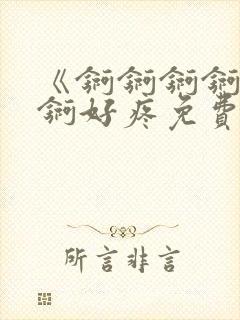 《锕锕锕锕
锕好疼免費
所言非言